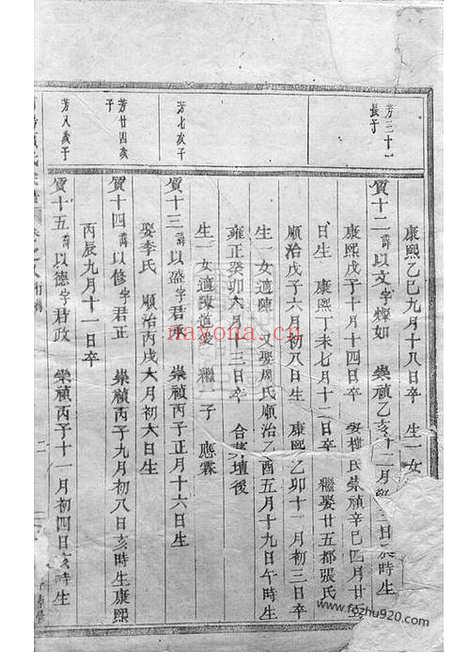 芳三十一
長子
康熙乙巳九月十八日卒 生一女
質十二 諱以文字燦如 崇禎乙亥十二月 日辰時生
康熙戊子十月十四日卒 娶 氏崇禎辛巳四月廿
日生 康熙丁未七月十二日卒 繼娶廿五都張氏
順治戊子六月初八日生 康熙乙卯十一月初三日卒
生一女適陳 又娶周氏順治乙酉五月十九日午時生
雍正癸卯六月十三日卒 合葬壇後
生一女適陳道愛 繼一子 應霖
芳七次子
質十三 諱以盈字君承 崇禎丙子正月十六日生
娶李氏 順治丙戌六月初六日生
芳廿四義
子
質十四 諱以修字君正 崇禎丙子九月初八日亥時生康熙
丙辰九月十一日卒
芳八義子
質十五 諱以德字君政 崇禎丙子十一月初四日亥時生
二
nayona.cn
www.fozhu920.com